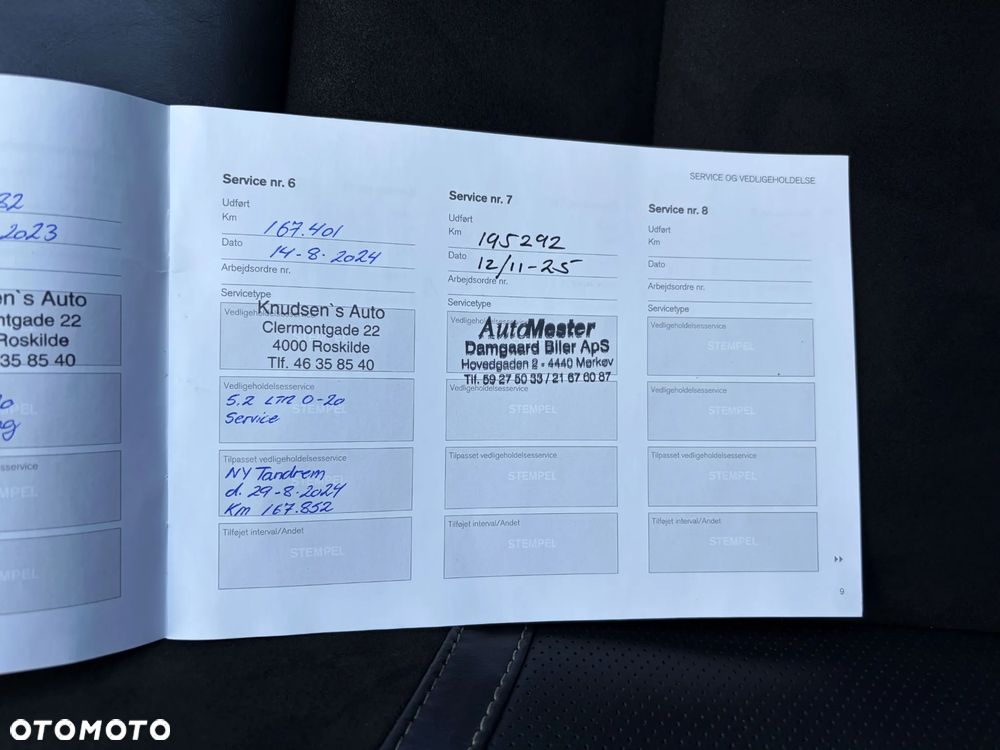 32
2023
en`s Auto
ntgade 22
Roskilde
35 85 40
sservice
STEMPEL
SERVICE OG VEDLIGEHOLDELSE
Service nr. 6
Udført
Km 167.401
Dato 14-8-2024
Arbejdsordre nr.
Servicetype
Vedligeholdelsesservice
Knudsen`s Auto
Clermontgade 22
4000 Roskilde
Tlf. 46 35 85 40
Vedligeholdelsesservice
5,2 LTR 0-20
Service
STEMPEL
Tilpasset vedligeholdelsesservice
NY Tandrem
d. 29-8-2024
Km 167.852
Tilføjet interval/Andet
STEMPEL
Service nr. 7
Udført
Km 195292
Dato 12/11-25
Arbejdsordre nr.
Servicetype
Vedligeholdelsesservice
AutoMester
Damgaard Biler ApS
Hovedgaden 2 - 4440 Mørkøv
Tlf. 59 27 50 33 / 21 67 60 87
Vedligeholdelsesservice
STEMPEL
Tilpasset vedligeholdelsesservice
STEMPEL
Tilføjet interval/Andet
STEMPEL
Service nr. 8
Udført
Km
Dato
Arbejdsordre nr.
Servicetype
Vedligeholdelsesservice
STEMPEL
Vedligeholdelsesservice
STEMPEL
Tilpasset vedligeholdelsesservice
STEMPEL
Tilføjet interval/Andet
STEMPEL
9
OTOMOTO